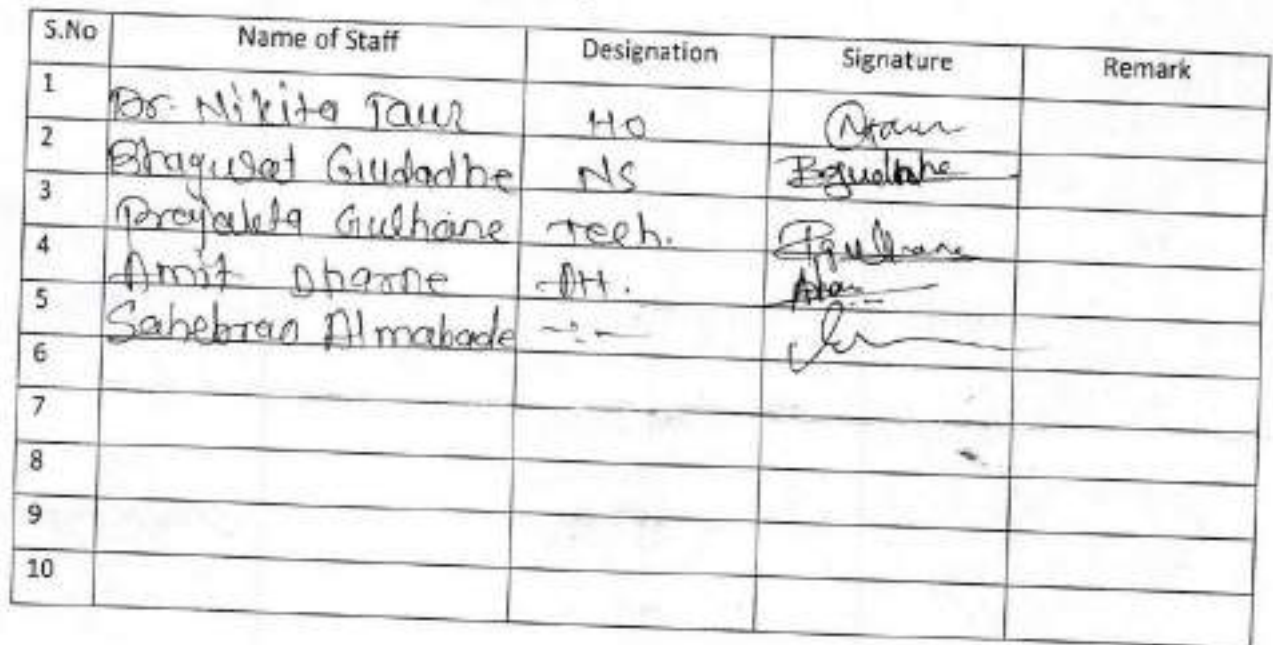 S.No Name of Staff Designation Signature Remark
1 Dr. Nikita Taur HO Ntaur
2 Bhagwat Gudadhe NS Bgudadhe
3 Gulhane Tech. Pgulhane
4 Amit Dharne
5 Sahebrao Almabade -:-
6
7
8
9
10